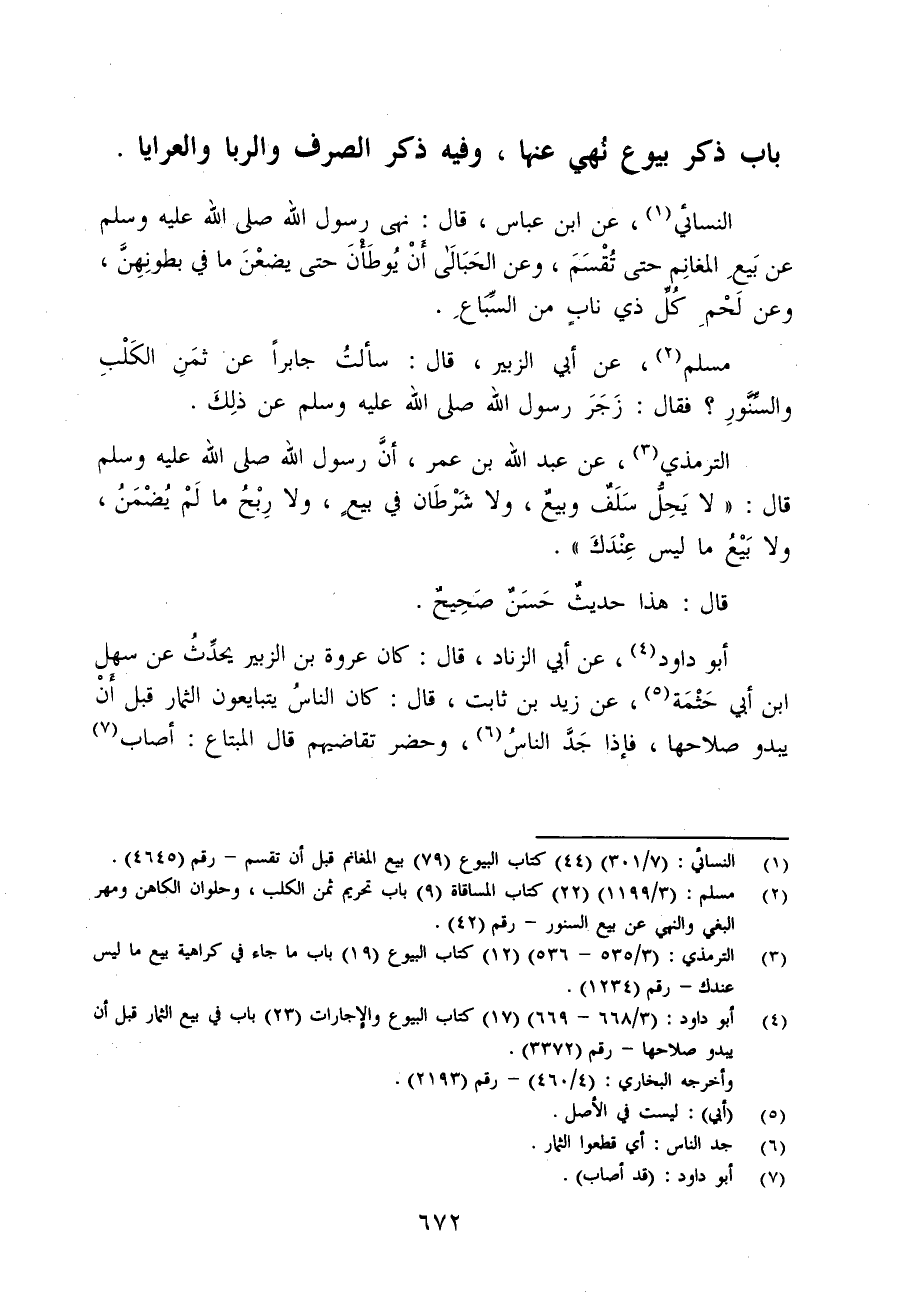 باب ذكر بيوع نُهي عنها ، وفيه ذكر الصرف والربا والعرايا .
النسائي(١) ، عن ابن عباس ، قال : نهى رسول الله صلى الله عليه وسلم
عن بَيع المغانِم حتى تُقْسَمَ ، وعن الحَبَالَى أَنْ يُوطَأْنَ حتى يضعْنَ ما في بطونِهِنَّ ،
وعن لَحْمِ كُلِّ ذي نابٍ من السِّبَاعِ .
مسلم(٢) ، عن أبي الزبير ، قال : سألتُ جابراً عن ثمَنِ الكَلْبِ
والسِّنَّورِ ؟ فقال : زَجَرَ رسول الله صلى الله عليه وسلم عن ذلِكَ .
الترمذي(٣) ، عن عبد الله بن عمر ، أنَّ رسول الله صلى الله عليه وسلم
قال : « لا يَحِلُّ سَلَفٌ وبيعٌ ، ولا شَرْطَان في بيعٍ ، ولا رِبْحُ ما لَمْ يُضْمَنُ ،
ولا بَيْعُ ما ليس عِنْدَكَ » .
قال : هذا حديثٌ حَسَنٌ صَحِيحٌ .
أبو داود(٤) ، عن أبي الزناد ، قال : كان عروة بن الزبير يحدِّثُ عن سهل
ابن أبي حَثْمَة(٥) ، عن زيد بن ثابت ، قال : كان الناسُ يتبايعون الثمار قبل أَنْ
يبدو صلاحها ، فإذا جَدَّ الناسُ(٦) ، وحضر تقاضيهم قال المبتاع : أصاب(٧)
(١) النسائي : (٣٠١/٧) (٤٤) كتاب البيوع (٧٩) بيع المغانم قبل أن تقسم – رقم (٤٦٤٥) .
(٢) مسلم : (١١٩٩/٣) (٢٢) كتاب المساقاة (٩) باب تحريم ثمن الكلب ، وحلوان الكاهن ومهر
البغي والنهي عن بيع السنور – رقم (٤٢) .
(٣) الترمذي : (٥٣٥/٣ – ٥٣٦) (١٢) كتاب البيوع (١٩) باب ما جاء في كراهية بيع ما ليس
عندك – رقم (١٢٣٤) .
(٤) أبو داود : (٦٦٨/٣ – ٦٦٩) (١٧) كتاب البيوع والإجارات (٢٣) باب في بيع الثمار قبل أن
يبدو صلاحها – رقم (٣٣٧٢) .
وأخرجه البخاري : (٤٦٠/٤) – رقم (٢١٩٣) .
(٥) (أبي) : ليست في الأصل .
(٦) جد الناس : أي قطعوا الثمار .
(٧) أبو داود : (قد أصاب) .
٦٧٢